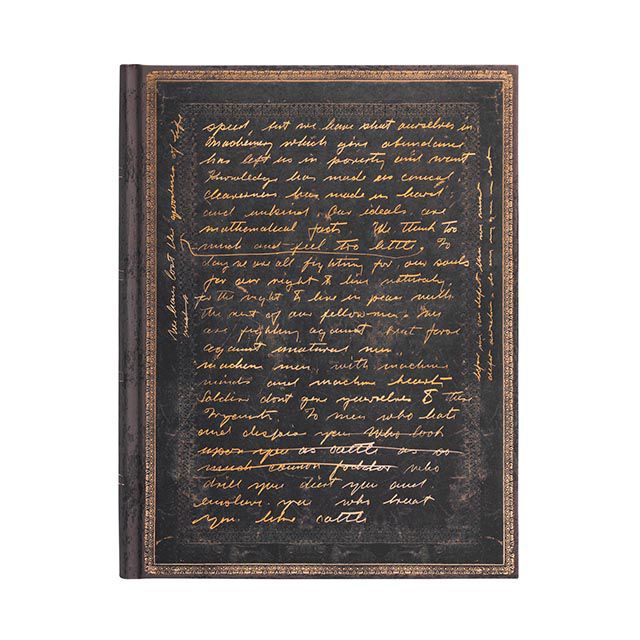 speed, but we have shut ourselves in
Machinery which gives abundance
has left us in poverty and want
Knowledge has made us cynical
cleverness has made us hard
and unkind. Our ideals are
mathematical facts. We think too
much and feel too little. To
day we are all fighting for our souls
for our right to live naturally
for the right to live in peace with
the rest of our fellow men.
are fighting against
against unnatural men
machine men, with machine
minds and machine hearts
Soldiers dont give yourselves to these
To men who hate
and despise you who look
upon you as cattle as so
much cannon fodder who
drill you diet you and
enslave you who treat
you like cattle
We have lost the of life